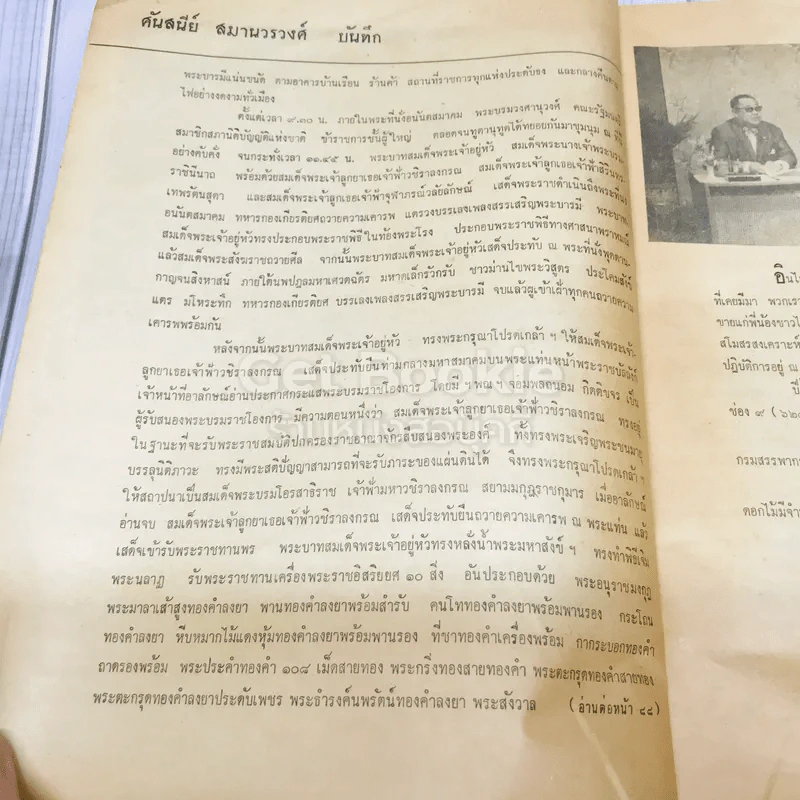 ศันสนีย์ สมานวรวงศ์ บันทึก
พระบารมีแน่นขนัด ตามอาคารบ้านเรือน ร้านค้า สถานที่ราชการทุกแห่งประดับธง และกลางคืนตาม
ไฟอย่างงดงามทั่วเมือง
ตั้งแต่เวลา ๙.๓๐ น. ภายในพระที่นั่งอนันตสมาคม พระบรมวงศานุวงศ์ คณะรัฐมนตรี
สมาชิกสภานิติบัญญัติแห่งชาติ ข้าราชการชั้นผู้ใหญ่ ตลอดจนทูตานุทูตได้ทยอยกันมาชุมนุม ณ ที่นี้
อย่างคับคั่ง จนกระทั่งเวลา ๑๑.๔๕ น. พระบาทสมเด็จพระเจ้าอยู่หัว สมเด็จพระนางเจ้าพระบรม
ราชินีนาถ พร้อมด้วยสมเด็จพระเจ้าลูกยาเธอเจ้าฟ้าวชิราลงกรณ สมเด็จพระเจ้าลูกเธอเจ้าฟ้าสิรินธร
เทพรัตนสุดา และสมเด็จพระเจ้าลูกเธอเจ้าฟ้าจุฬาภรณ์วลัยลักษณ์ เสด็จพระราชดำเนินถึงพระที่นั่ง
อนันตสมาคม ทหารกองเกียรติยศถวายความเคารพ แตรวงบรรเลงเพลงสรรเสริญพระบารมี พระบาท
สมเด็จพระเจ้าอยู่หัวทรงประกอบพระราชพิธีในท้องพระโรง ประกอบพระราชพิธีทางศาสนาพราหมณ์
แล้วสมเด็จพระสังฆราชถวายศีล จากนั้นพระบาทสมเด็จพระเจ้าอยู่หัวเสด็จประทับ ณ พระที่นั่งพุดตาน
กาญจนสิงหาสน์ ภายใต้นพปฎลมหาเศวตฉัตร มหาดเล็กรัวกรับ ชาวม่านไขพระวิสูตร ประโคมสังข์
แตร มโหระทึก ทหารกองเกียรติยศ บรรเลงเพลงสรรเสริญพระบารมี จบแล้วผู้เข้าเฝ้าทุกคนถวายความ
เคารพพร้อมกัน
หลังจากนั้นพระบาทสมเด็จพระเจ้าอยู่หัว ทรงพระกรุณาโปรดเกล้า ฯ ให้สมเด็จพระเจ้า
ลูกยาเธอเจ้าฟ้าวชิราลงกรณ เสด็จประทับยืนท่ามกลางมหาสมาคมบนพระแท่นหน้าพระราชบัลลังก์
เจ้าหน้าที่อาลักษณ์อ่านประกาศกระแสพระบรมราชโองการ โดยมี ฯพณฯ จอมพลถนอม กิตติขจร เป็น
ผู้รับสนองพระบรมราชโองการ มีความตอนหนึ่งว่า สมเด็จพระเจ้าลูกยาเธอเจ้าฟ้าวชิราลงกรณ ทรงอยู่
ในฐานะที่จะรับพระราชสมบัติปกครองราชอาณาจักรสืบสนองพระองค์ ทั้งทรงพระเจริญพระชนมายุ
บรรลุนิติภาวะ ทรงมีพระสติปัญญาสามารถที่จะรับภาระของแผ่นดินได้ จึงทรงพระกรุณาโปรดเกล้า ฯ
ให้สถาปนาเป็นสมเด็จพระบรมโอรสาธิราช เจ้าฟ้ามหาวชิราลงกรณ สยามมกุฎราชกุมาร เมื่ออาลักษณ์
อ่านจบ สมเด็จพระเจ้าลูกยาเธอเจ้าฟ้าวชิราลงกรณ เสด็จประทับยืนถวายความเคารพ ณ พระแท่น แล้ว
เสด็จเข้ารับพระราชทานพร พระบาทสมเด็จพระเจ้าอยู่หัวทรงหลั่งน้ำพระมหาสังข์ ฯ ทรงทำพิธีเจิม
พระนลาฏ รับพระราชทานเครื่องพระราชอิสริยยศ ๑๐ สิ่ง อันประกอบด้วย พระอนุราชมงกุฎ
พระมาลาเส้าสูงทองคำลงยา พานทองคำลงยาพร้อมสำรับ คนโททองคำลงยาพร้อมพานรอง กระโถน
ทองคำลงยา หีบหมากไม้แดงหุ้มทองคำลงยาพร้อมพานรอง ที่ชาทองคำเครื่องพร้อม กากระบอกทองคำ
ถาดรองพร้อม พระประคำทองคำ ๑๐๘ เม็ดสายทอง พระกริ่งทองสายทองคำ พระตะกรุดทองคำสายทอง
พระตะกรุดทองคำลงยาประดับเพชร พระธำรงค์นพรัตน์ทองคำลงยา พระสังวาล (อ่านต่อหน้า ๔๔)
ที่เคยมีมา พวกเรา
ขายแก่พี่น้องชาวไ
สโมสรสงเคราะห์
ปฏิบัติการอยู่ ณ
ช่อง ๙ (๖๒๐
กรมสรรพาก
ดอกไม้มีจำ
Get Bookie